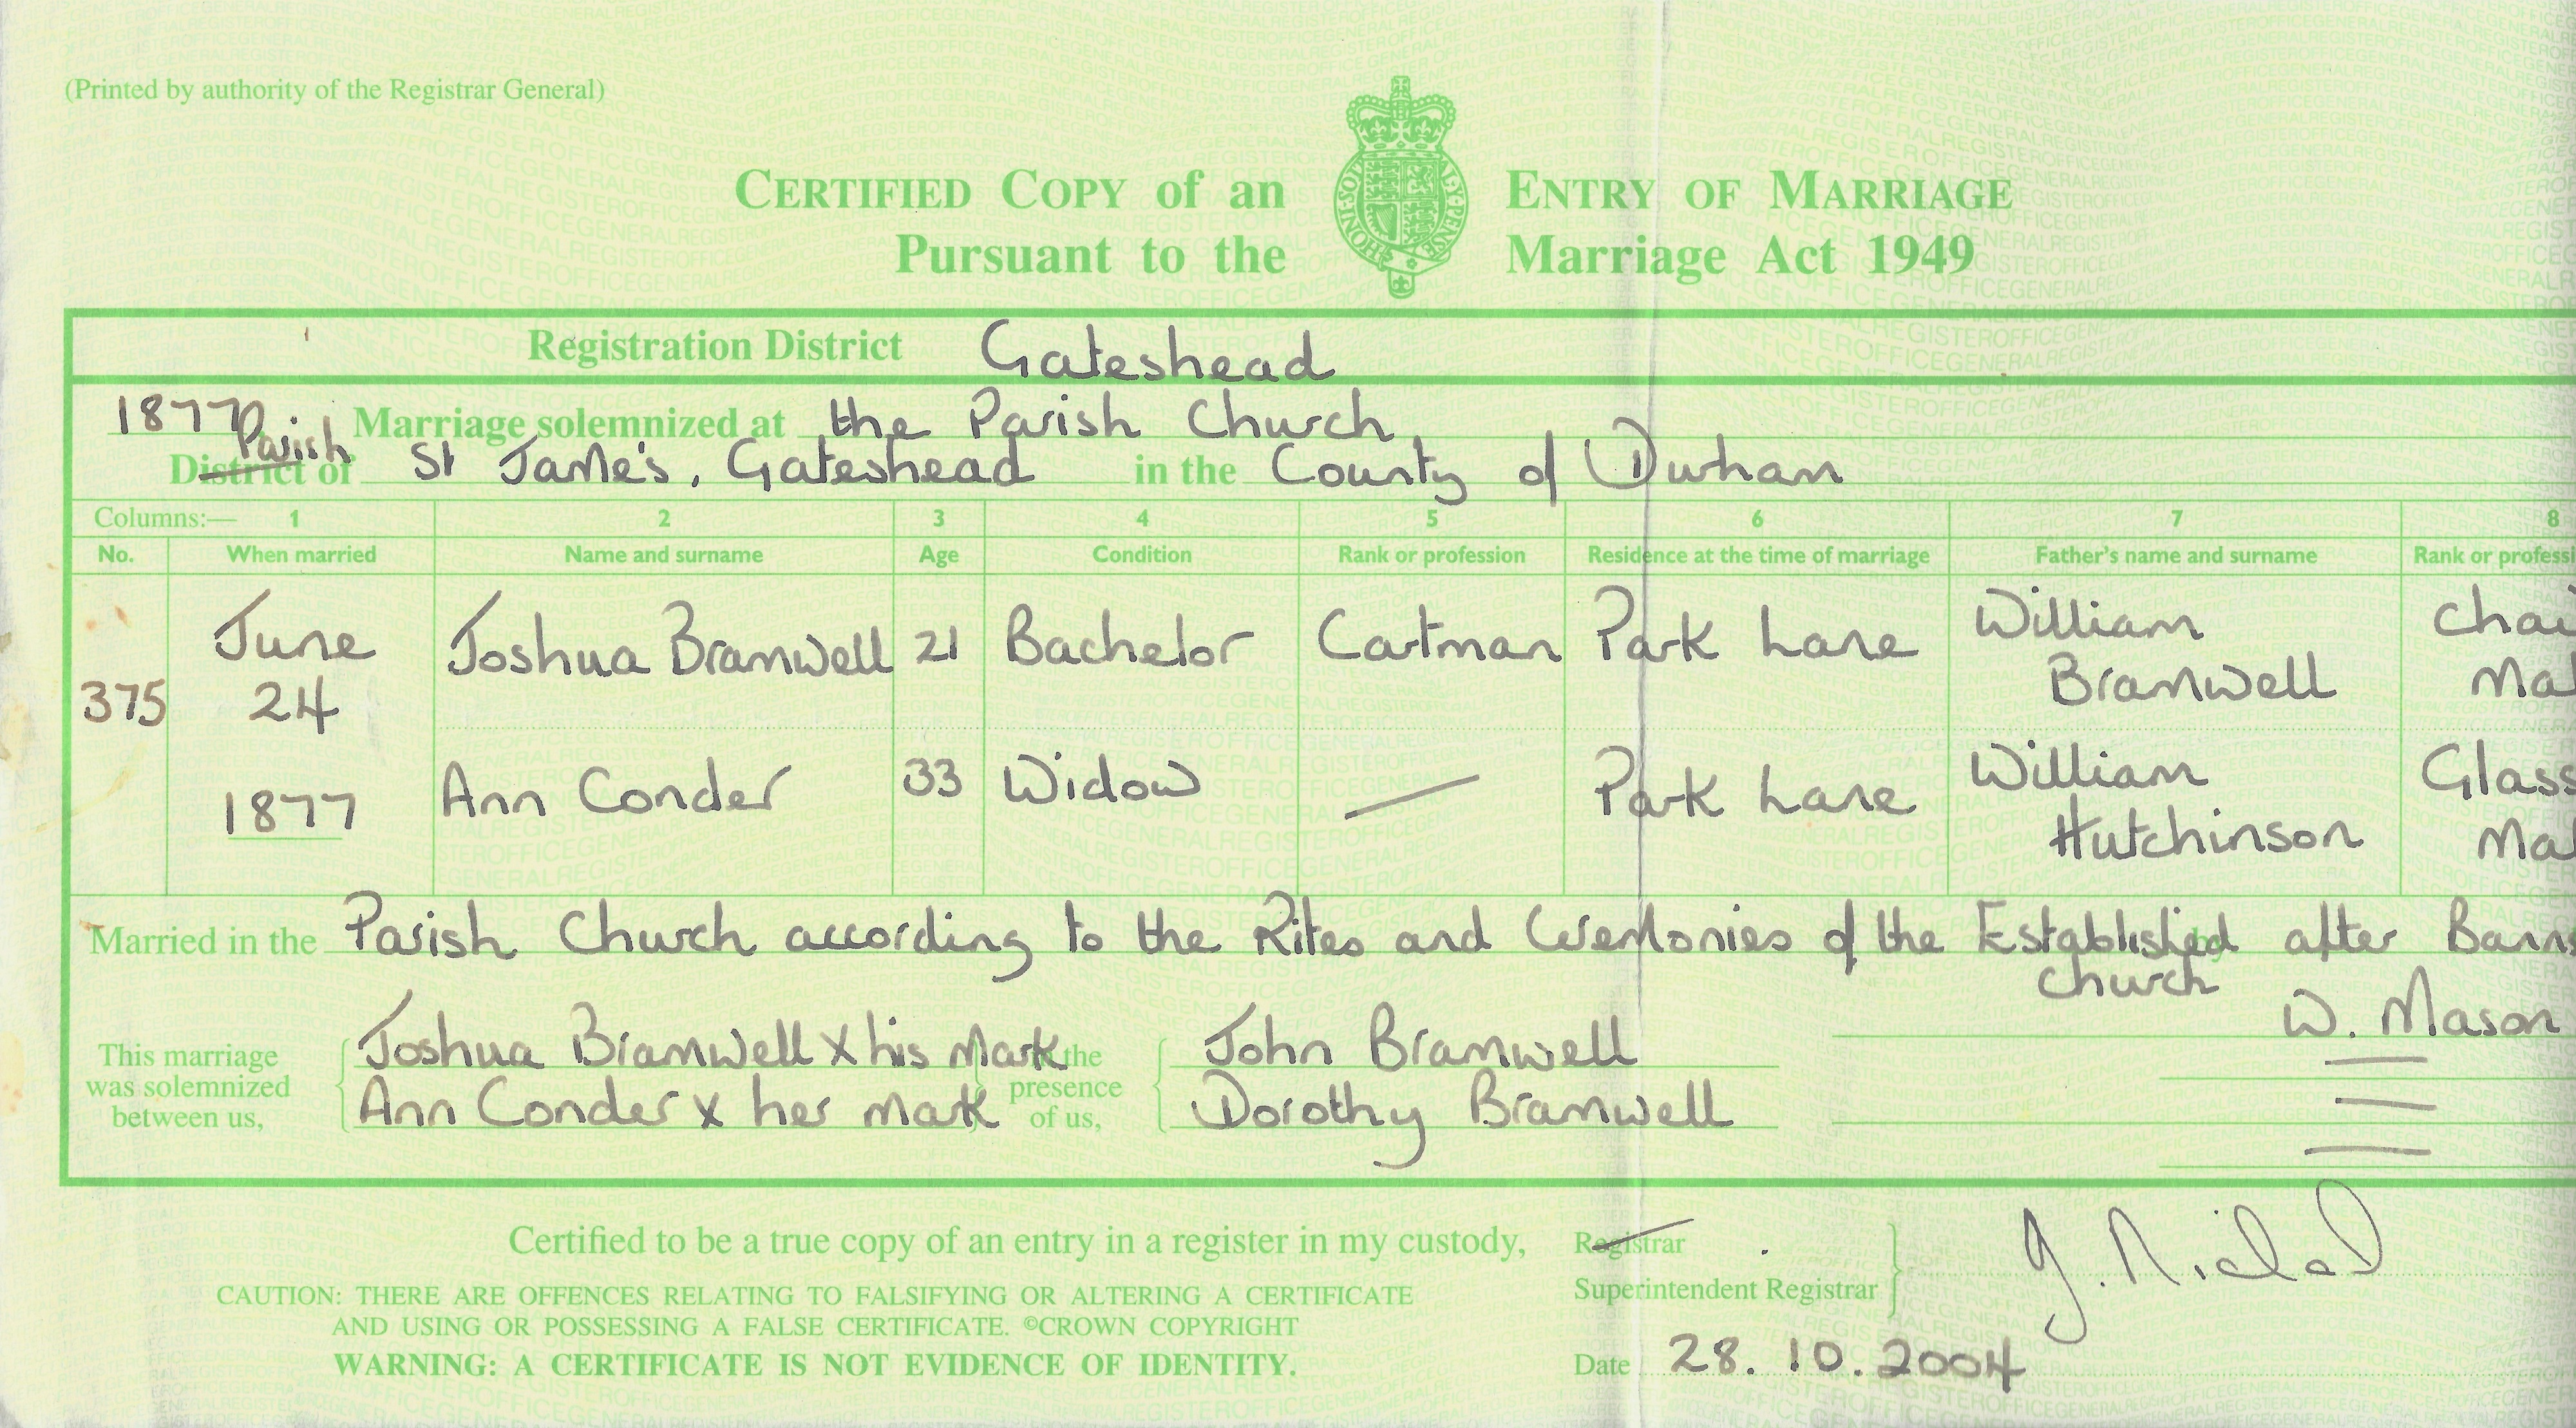 (Printed by authority of the Registrar General)
CERTIFIED COPY of an ENTRY OF MARRIAGE
Pursuant to the Marriage Act 1949
HONI·SOI Y·PENSE
Registration District Gateshead
1877 Marriage solemnized at the Parish Church
District of Parish St James's, Gateshead in the County of Durham
Columns:— 1 2 3 4 5 6 7 8
No. When married Name and surname Age Condition Rank or profession Residence at the time of marriage Father's name and surname Rank or professi
375 June 24 Joshua Bramwell 21 Bachelor Cartman Park Lane William Bramwell Chai Ma
1877 Ann Conder 33 Widow — Park Lane William Hutchinson Glass Ma
Married in the Parish Church according to the Rites and Ceremonies of the Established Church after Banns
W. Mason
This marriage was solemnized between us, Joshua Bramwell X his mark in the presence of us, John Bramwell
Ann Conder X her mark Dorothy Bramwell
Certified to be a true copy of an entry in a register in my custody, Registrar
Superintendent Registrar
CAUTION: THERE ARE OFFENCES RELATING TO FALSIFYING OR ALTERING A CERTIFICATE
AND USING OR POSSESSING A FALSE CERTIFICATE. ©CROWN COPYRIGHT
WARNING: A CERTIFICATE IS NOT EVIDENCE OF IDENTITY.
Date 28.10.2004